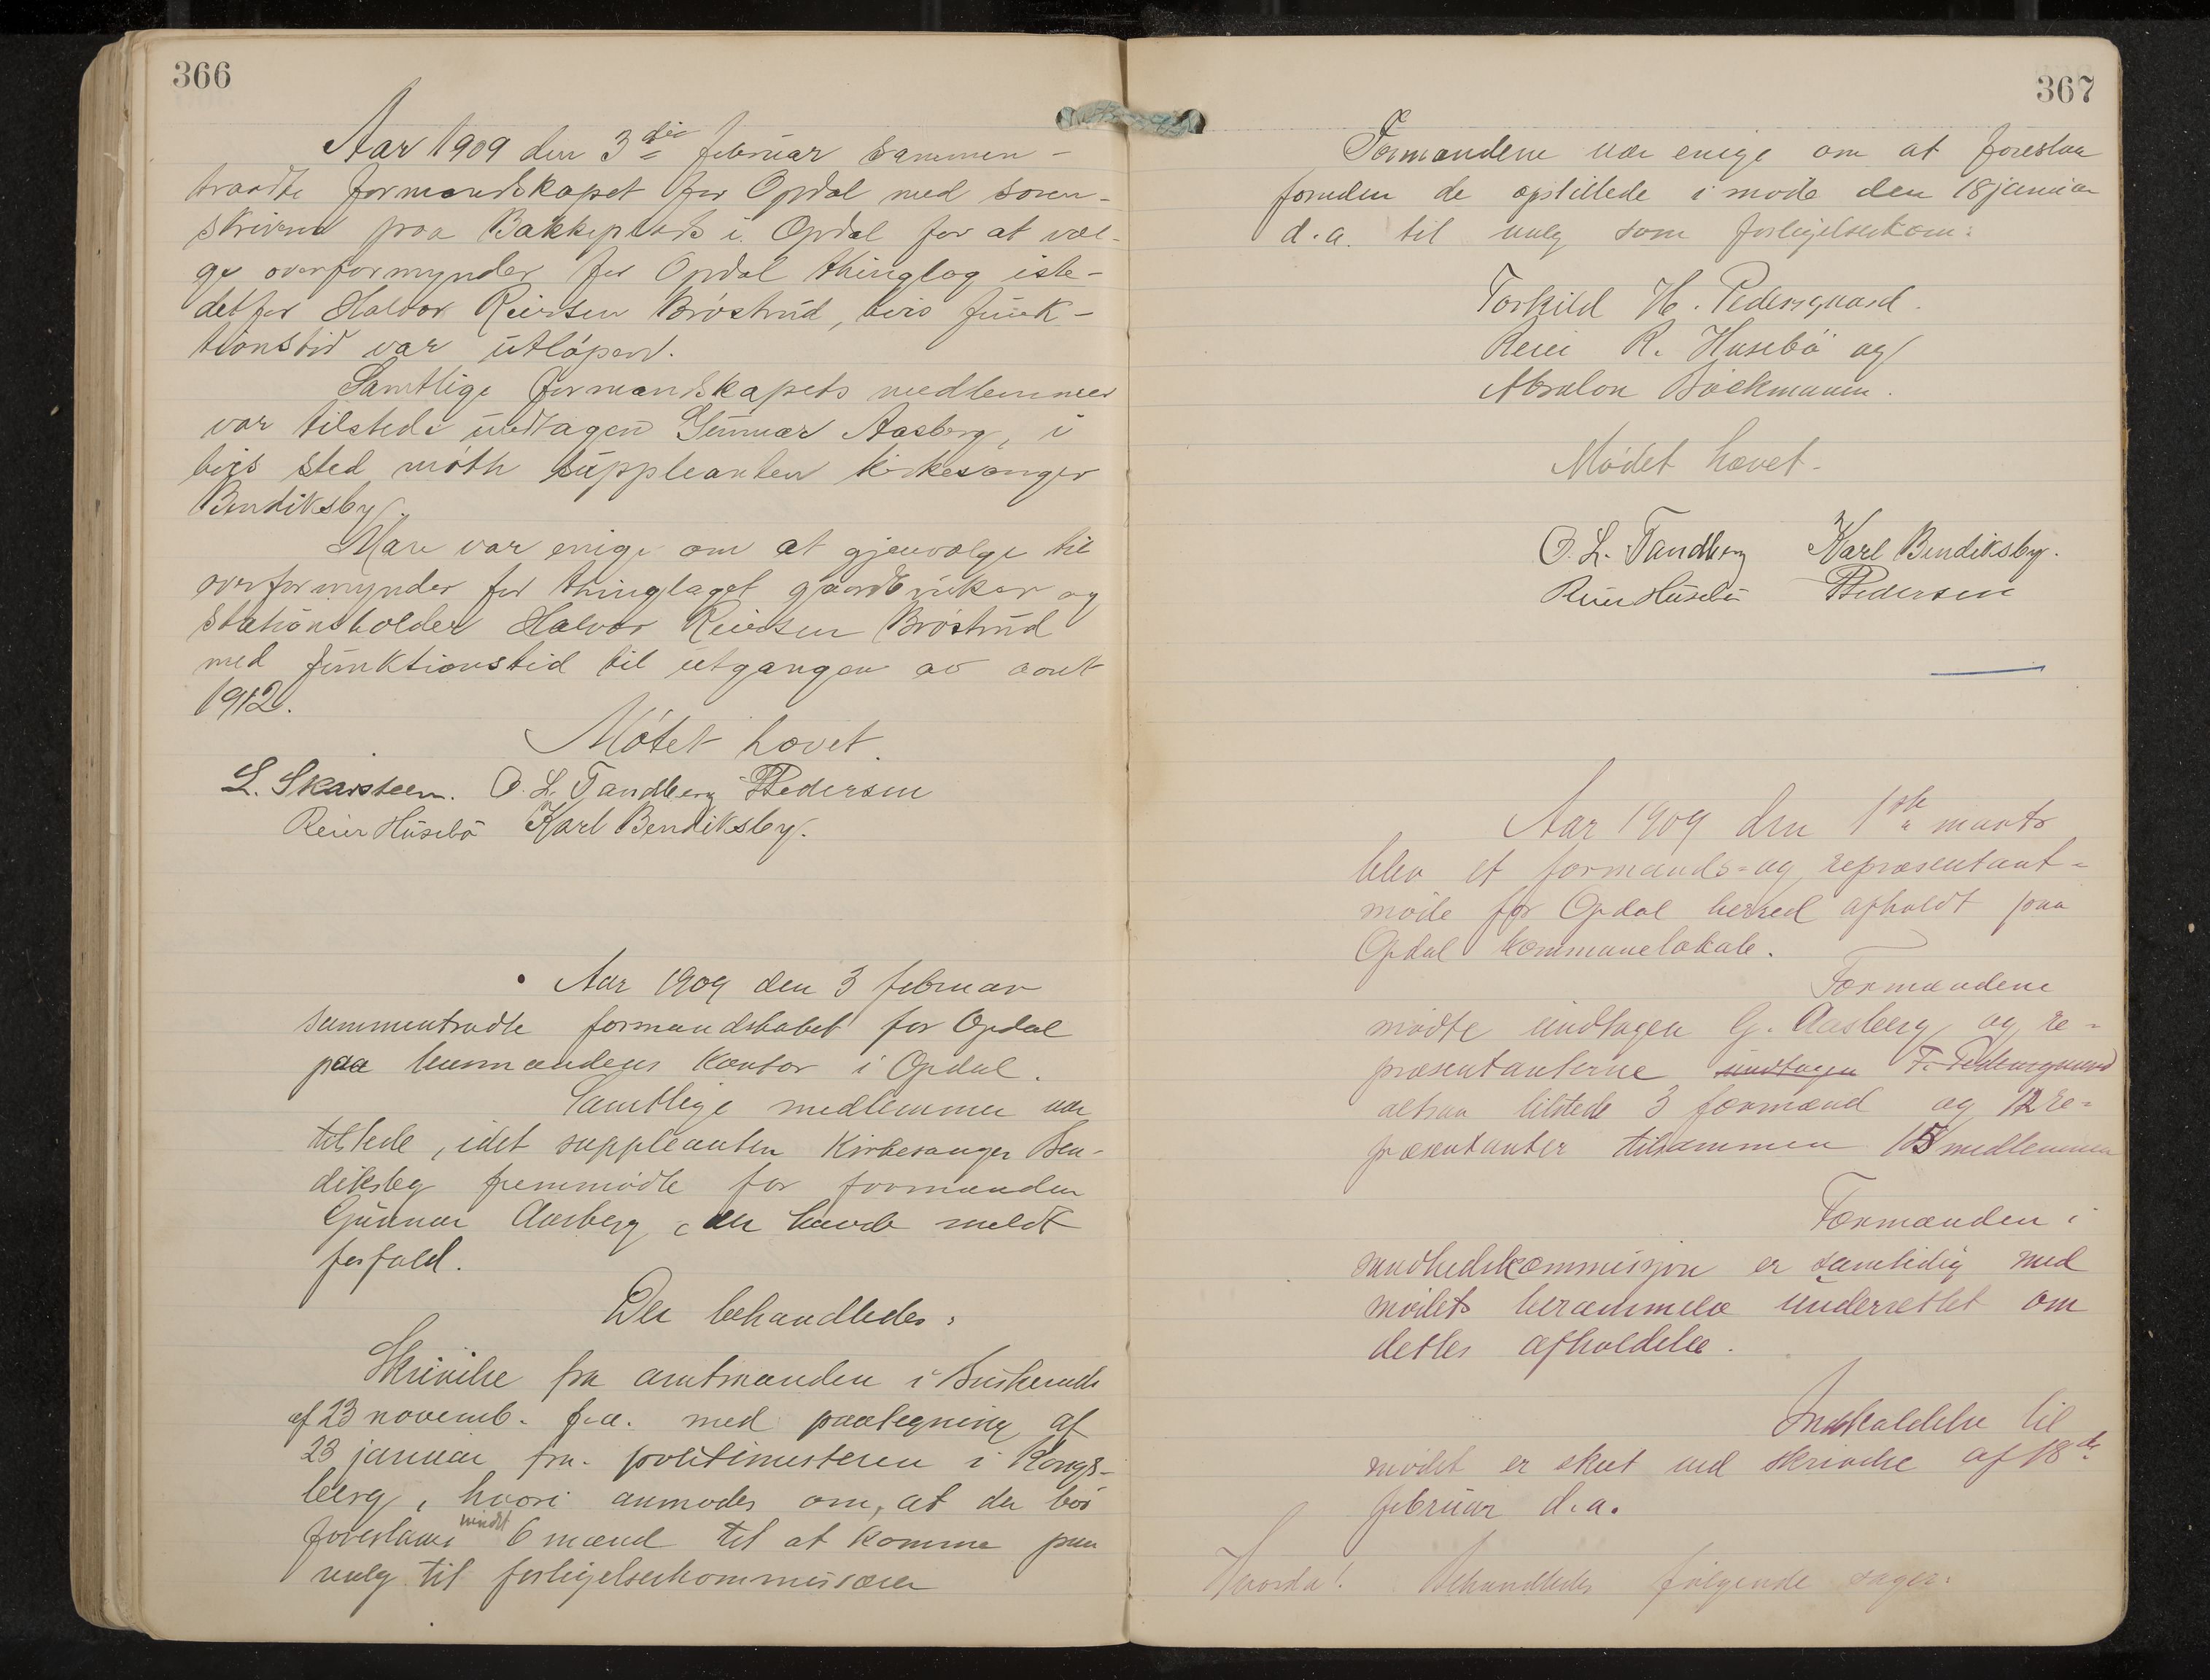 366
Aar 1909 den 3die februar sammen-
traadte formandskapet for Opdal med soren-
skriveren paa Bakkeplads i Opdal for at væl-
ge overformynder for Opdal thinglag iste-
detfor Halvor Reiersen Brøstrud, hvis funk-
tionstid var utløpen.
Samtlige formandskapets medlemmer
var tilstede undtagen Gunnar Aasberg, i
hvis sted møtte suppleanten kirkesanger
Bendiksby.
Man var enige om at gjenvælge til
overformynder for thinglaget gaardbruker og
stationsholder Halvor Reiersen Brøstrud
med funktionstid til utgangen av aaret
1912.
Møtet hævet.
L. Skarsteen. O. L. Tandberg TPedersen
Reier Husebø Karl Bendiksby.
Aar 1909 den 3 februar
sammentradte formandskabet for Opdal
paa lensmandens kontor i Opdal.
Samtlige medlemmer var
tilstede, idet suppleanten Kirkesanger Ben-
diksby fremmødte for formanden
Gunnar Aasberg, der havde meldt
forfald.
Der behandledes:
Skrivelse fra amtmanden i Buskerud
af 23 novemb. f.a. med paategning af
23 januar fra politimesteren i Kongs-
berg, hvori anmodes om, at der bør
foreslaaes mindst 6 mænd til at komme paa
valg til forligelseskommissærer
367
Formændene var enige om at foreslaa
foruden de opstillede i møde den 18 januar
d.a. til valg som forligelseskom:
Torkild H. Pedersgaard.
Reier R. Husebö og
Absalon Böckmann.
Mødet hævet.
O. L. Tandberg Karl Bendiksby.
Reier Husebø TPedersen
Aar 1909 den 1ste marts
blev et formands- og repræsentant-
møde for Opdal herred afholdt paa
Opdal kommunelokale.
Formændene
mødte undtagen G. Aasberg og re-
præsentanterne undtagen T. Pedersgaard
altsaa tilstede 3 formænd og 12 re-
præsentanter tilsammen 15 medlemmer
Formanden i
sundhedskommissjon er samtidig med
mødets berammelse underrettet om
dettes afholdelse.
Indkaldelse til
mødet er skeet ved skrivelse af 18de
februar d.a.
Hvorda! Behandledes følgende sager: